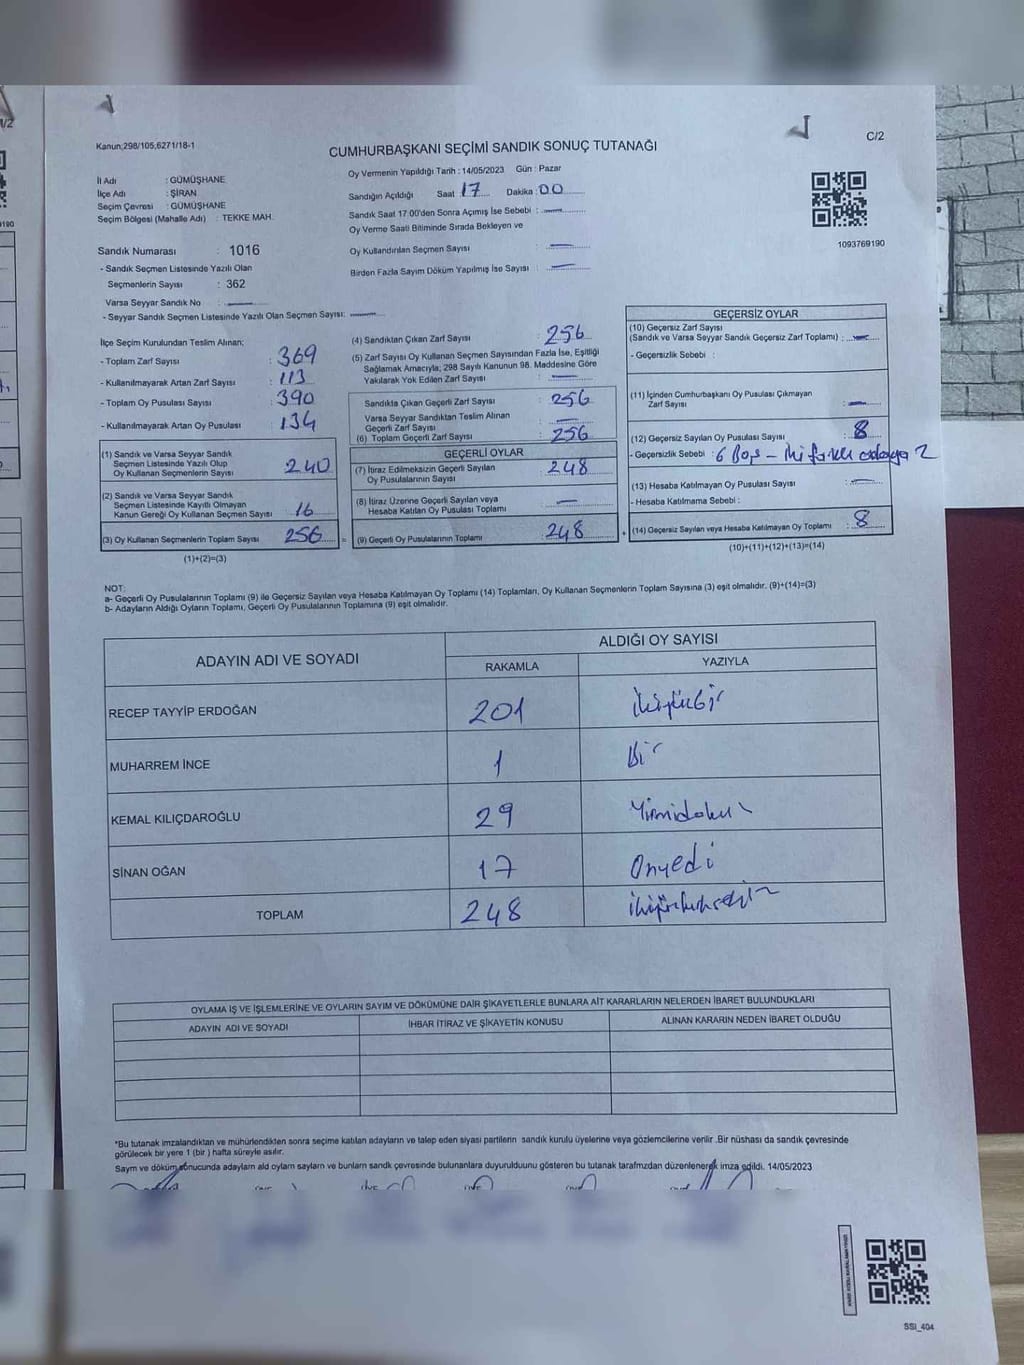 C/2
Kanun;298/105,6271/18-1
CUMHURBAŞKANI SEÇİMİ SANDIK SONUÇ TUTANAĞI
İl Adı : GÜMÜŞHANE
İlçe Adı : ŞİRAN
Seçim Çevresi : GÜMÜŞHANE
Seçim Bölgesi (Mahalle Adı) : TEKKE MAH.
Oy Vermenin Yapıldığı Tarih : 14/05/2023 Gün : Pazar
Sandığın Açıldığı Saat 17 Dakika : 00
Sandık Saat 17.00'den Sonra Açımış İse Sebebi : —
Oy Verme Saati Bitiminde Sırada Bekleyen ve
Oy Kullandırılan Seçmen Sayısı : —
Birden Fazla Sayım Döküm Yapılmış İse Sayısı : —
1093769190
Sandık Numarası : 1016
- Sandık Seçmen Listesinde Yazılı Olan
Seçmenlerin Sayısı : 362
Varsa Seyyar Sandık No : —
- Seyyar Sandık Seçmen Listesinde Yazılı Olan Seçmen Sayısı: —
İlçe Seçim Kurulundan Teslim Alınan;
- Toplam Zarf Sayısı : 369
- Kullanılmayarak Artan Zarf Sayısı : 113
- Toplam Oy Pusulası Sayısı : 390
- Kullanılmayarak Artan Oy Pusulası : 134
(1) Sandık ve Varsa Seyyar Sandık
Seçmen Listesinde Yazılı Olup
Oy Kullanan Seçmenlerin Sayısı : 240
(2) Sandık ve Varsa Seyyar Sandık
Seçmen Listesinde Kayıtlı Olmayan
Kanun Gereği Oy Kullanan Seçmen Sayısı : 16
(3) Oy Kullanan Seçmenlerin Toplam Sayısı : 256 =
(1)+(2)=(3)
(4) Sandıktan Çıkan Zarf Sayısı : 256
(5) Zarf Sayısı Oy Kullanan Seçmen Sayısından Fazla İse, Eşitliği
Sağlamak Amacıyla; 298 Sayılı Kanunun 98. Maddesine Göre
Yakılarak Yok Edilen Zarf Sayısı : —
Sandıkta Çıkan Geçerli Zarf Sayısı : 256
Varsa Seyyar Sandıktan Teslim Alınan
Geçerli Zarf Sayısı : —
(6) Toplam Geçerli Zarf Sayısı : 256
GEÇERLİ OYLAR
(7) İtiraz Edilmeksizin Geçerli Sayılan
Oy Pusulalarının Sayısı : 248
(8) İtiraz Üzerine Geçerli Sayılan veya
Hesaba Katılan Oy Pusulası Toplamı : —
(9) Geçerli Oy Pusulalarının Toplamı : 248 +
GEÇERSİZ OYLAR
(10) Geçersiz Zarf Sayısı
(Sandık ve Varsa Seyyar Sandık Geçersiz Zarf Toplamı) : —
- Geçersizlik Sebebi :
(11) İçinden Cumhurbaşkanı Oy Pusulası Çıkmayan
Zarf Sayısı : —
(12) Geçersiz Sayılan Oy Pusulası Sayısı : 8
- Geçersizlik Sebebi : 6 Boş - iki farklı adaya 2
(13) Hesaba Katılmayan Oy Pusulası Sayısı : —
- Hesaba Katılmama Sebebi :
(14) Geçersiz Sayılan veya Hesaba Katılmayan Oy Toplamı : 8
(10)+(11)+(12)+(13)=(14)
NOT:
a- Geçerli Oy Pusulalarının Toplamı (9) ile Geçersiz Sayılan veya Hesaba Katılmayan Oy Toplamı (14) Toplamları, Oy Kullanan Seçmenlerin Toplam Sayısına (3) eşit olmalıdır. (9)+(14)=(3)
b- Adayların Aldığı Oyların Toplamı, Geçerli Oy Pusulalarının Toplamına (9) eşit olmalıdır.
ADAYIN ADI VE SOYADI ALDIĞI OY SAYISI
RAKAMLA YAZIYLA
RECEP TAYYİP ERDOĞAN 201 ikiyüzbir
MUHARREM İNCE 1 Bir
KEMAL KILIÇDAROĞLU 29 Yirmidokuz
SİNAN OĞAN 17 Onyedi
TOPLAM 248 ikiyüzkırksekiz
OYLAMA İŞ VE İŞLEMLERİNE VE OYLARIN SAYIM VE DÖKÜMÜNE DAİR ŞİKAYETLERLE BUNLARA AİT KARARLARIN NELERDEN İBARET BULUNDUKLARI
ADAYIN ADI VE SOYADI İHBAR İTİRAZ VE ŞİKAYETİN KONUSU ALINAN KARARIN NEDEN İBARET OLDUĞU
*Bu tutanak imzalandıktan ve mühürlendikten sonra seçime katılan adayların ve talep eden siyasi partilerin sandık kurulu üyelerine veya gözlemcilerine verilir .Bir nüshası da sandık çevresinde
görülecek bir yere 1 (bir ) hafta süreyle asılır.
Sayım ve döküm sonucunda adayların aldı oyların sayıları ve bunların sandk çevresinde bulunanlara duyurulduunu gösteren bu tutanak tarafmzdan düzenlenerek imza edildi. 14/05/2023
SSI_404